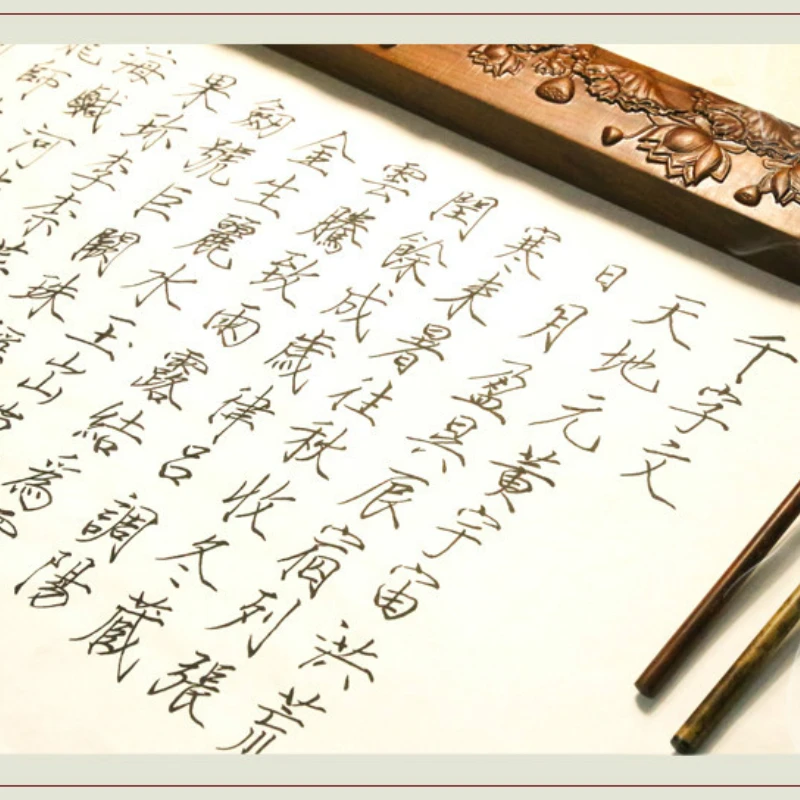 千字文
天地元黃宇宙洪荒
日月盈昃辰宿列張
寒来暑往秋收冬藏
閏餘成歲律呂調陽
雲騰致雨露結為
金生麗水玉出
劍號巨闕珠
果珍李柰
海鹹河
師